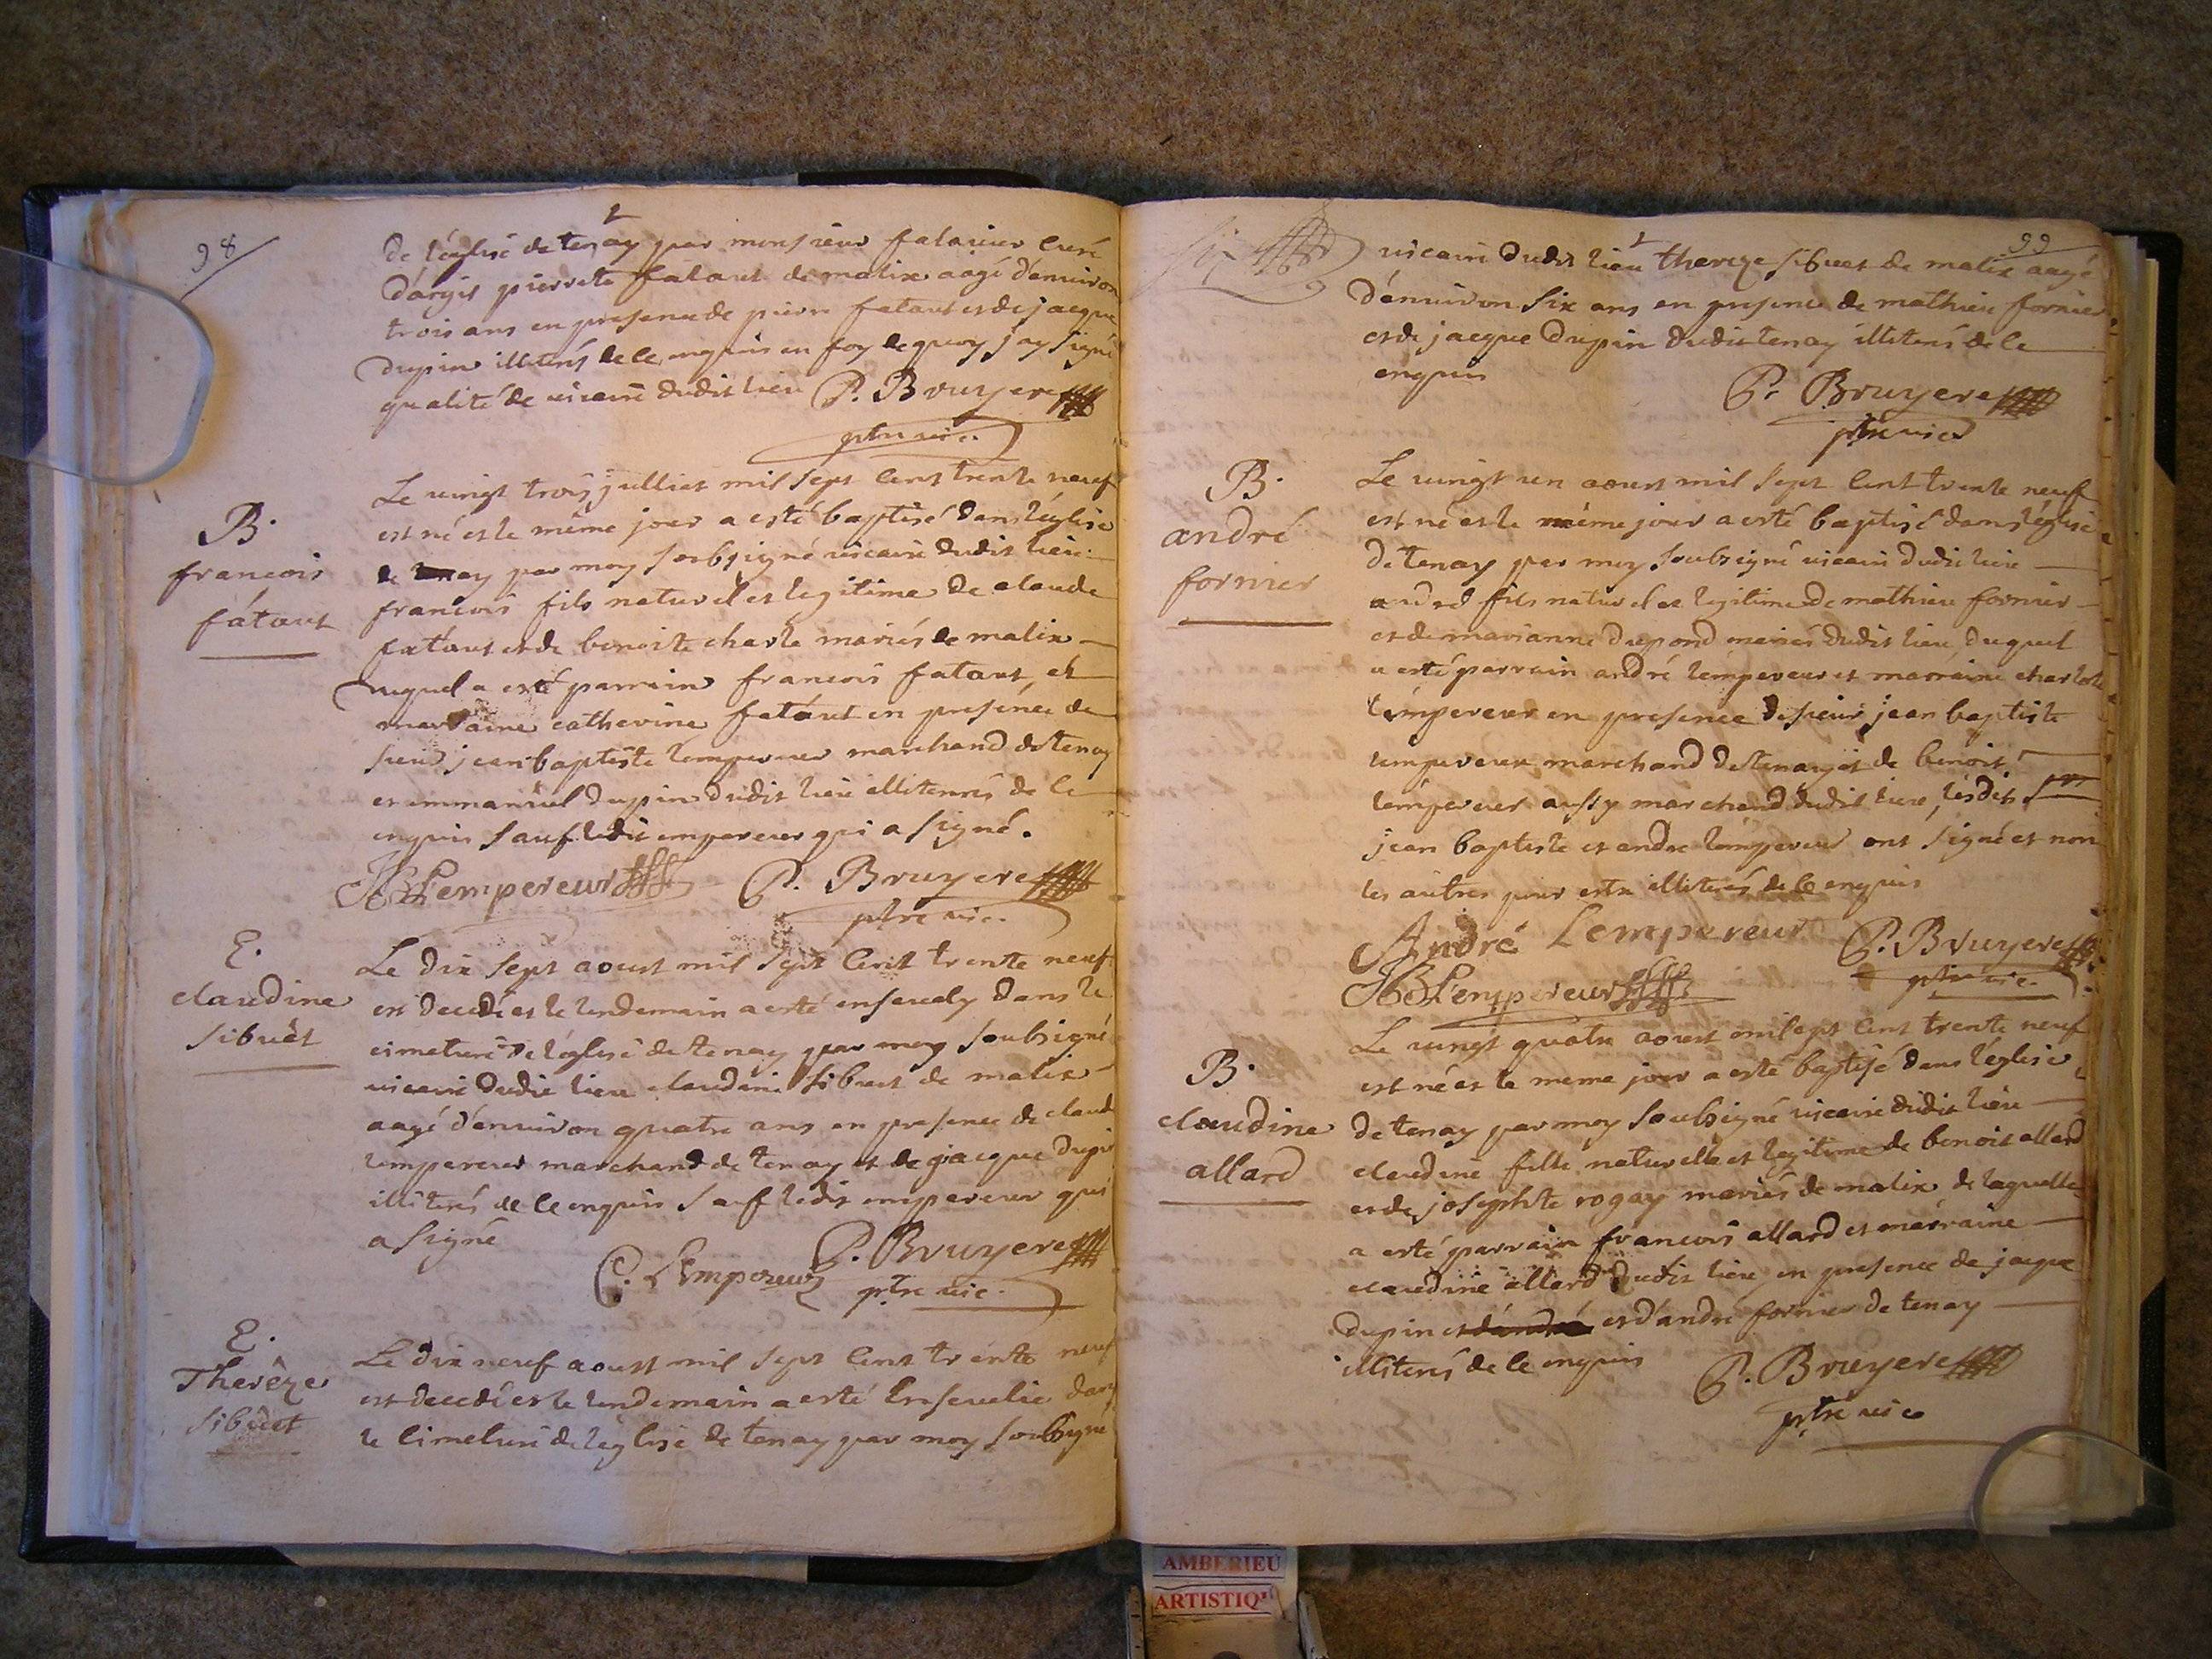 98
de l'église de tenay par monsieur falavier curé
d'argis pierrete fatout de malix aagé d'environ
trois ans en presence de pierre fatout et de jacque
dupin illiterés de ce enquis en foy de quoy j'ay signé
qualité de vicaire dudit lieu P. Bruyere
ptre vic.
B.
francois
fátout
Le vingt trois julliet mil sept cent trente neuf
est né et le même jour a esté baptisé dans l'église
de tenay par moy soubsigné vicaire dudit lieu
francois fils naturel et legitime de claude
fatout et de benoite charle mariés de malix
duquel a esté parrain francois fatout, et
marraine catherine fatout en presence de
sieur jean baptiste lempereur marchand de tenay
et emmanuel dupin dudit lieu illiterés de ce
enquis sauf ledit empereur qui a signé.
JB Lempereur P. Bruyere
ptre vic.
E.
claudine
sibuët
Le dix sept aoust mil sept cent trente neuf
est decedé et le lendemain a esté ensevely dans le
cimetiere de l'église de tenay par moy soubsigné
vicaire dudit lieu claudine sibuet de malix
aagé d'environ quatre ans en presence de claude
lempereur marchand de tenay et de jacque dupin
illiterés de ce enquis sauf ledit empereur qui
a signé
C. LEmpereur P. Bruyere
ptre vic.
E.
Therèze
sibuet
Le dix neuf aoust mil sept cent trente neuf
est decedé et le lendemain a esté ensevelie dans
le cimetiere de l'église de tenay par moy soubsigné
99
vicaire dudit lieu thereze sibuet de malix aagé
d'environ six ans en presence de mathieu fornier
et de jacque dupin dudit tenay illiterés de ce
enquis
P. Bruyere
ptre vic
B.
andré
fornier
Le vingt un aoust mil sept cent trente neuf
est né et le même jour a esté baptisé dans l'église
de tenay par moy soubsigné vicaire dudit lieu
andré fils naturel et legitime de mathieu fornier
et de marianne dupond mariés dudit lieu, duquel
a esté parrain andré lempereur et marraine charlote
lempereur en presence de sieur jean baptiste
lempereur marchand de tenay et de benoit
lempereur aussy marchand dudit lieu, lesdits srs
jean baptiste et andre lempereur ont signé et non
les autres pour estre illiterés de ce enquis
André Lempereur P. Bruyere
JB Lempereur ptre vic.
B.
claudine
allard
Le vingt quatre aoust mil sept cent trente neuf
est né et le meme jour a esté baptisé dans l'église
de tenay par moy soubsigné vicaire dudit lieu
claudine fille naturelle et legitime de benoit allard
et de josephte rogay mariés de malix de laquelle
a esté parrain francois allard et marraine
claudine allard dudit lieu en presence de jacque
dupin et d'andré et d'andré fornier de tenay
illiterés de ce enquis P. Bruyere
ptre vic
AMBERIEU
ARTISTIQ